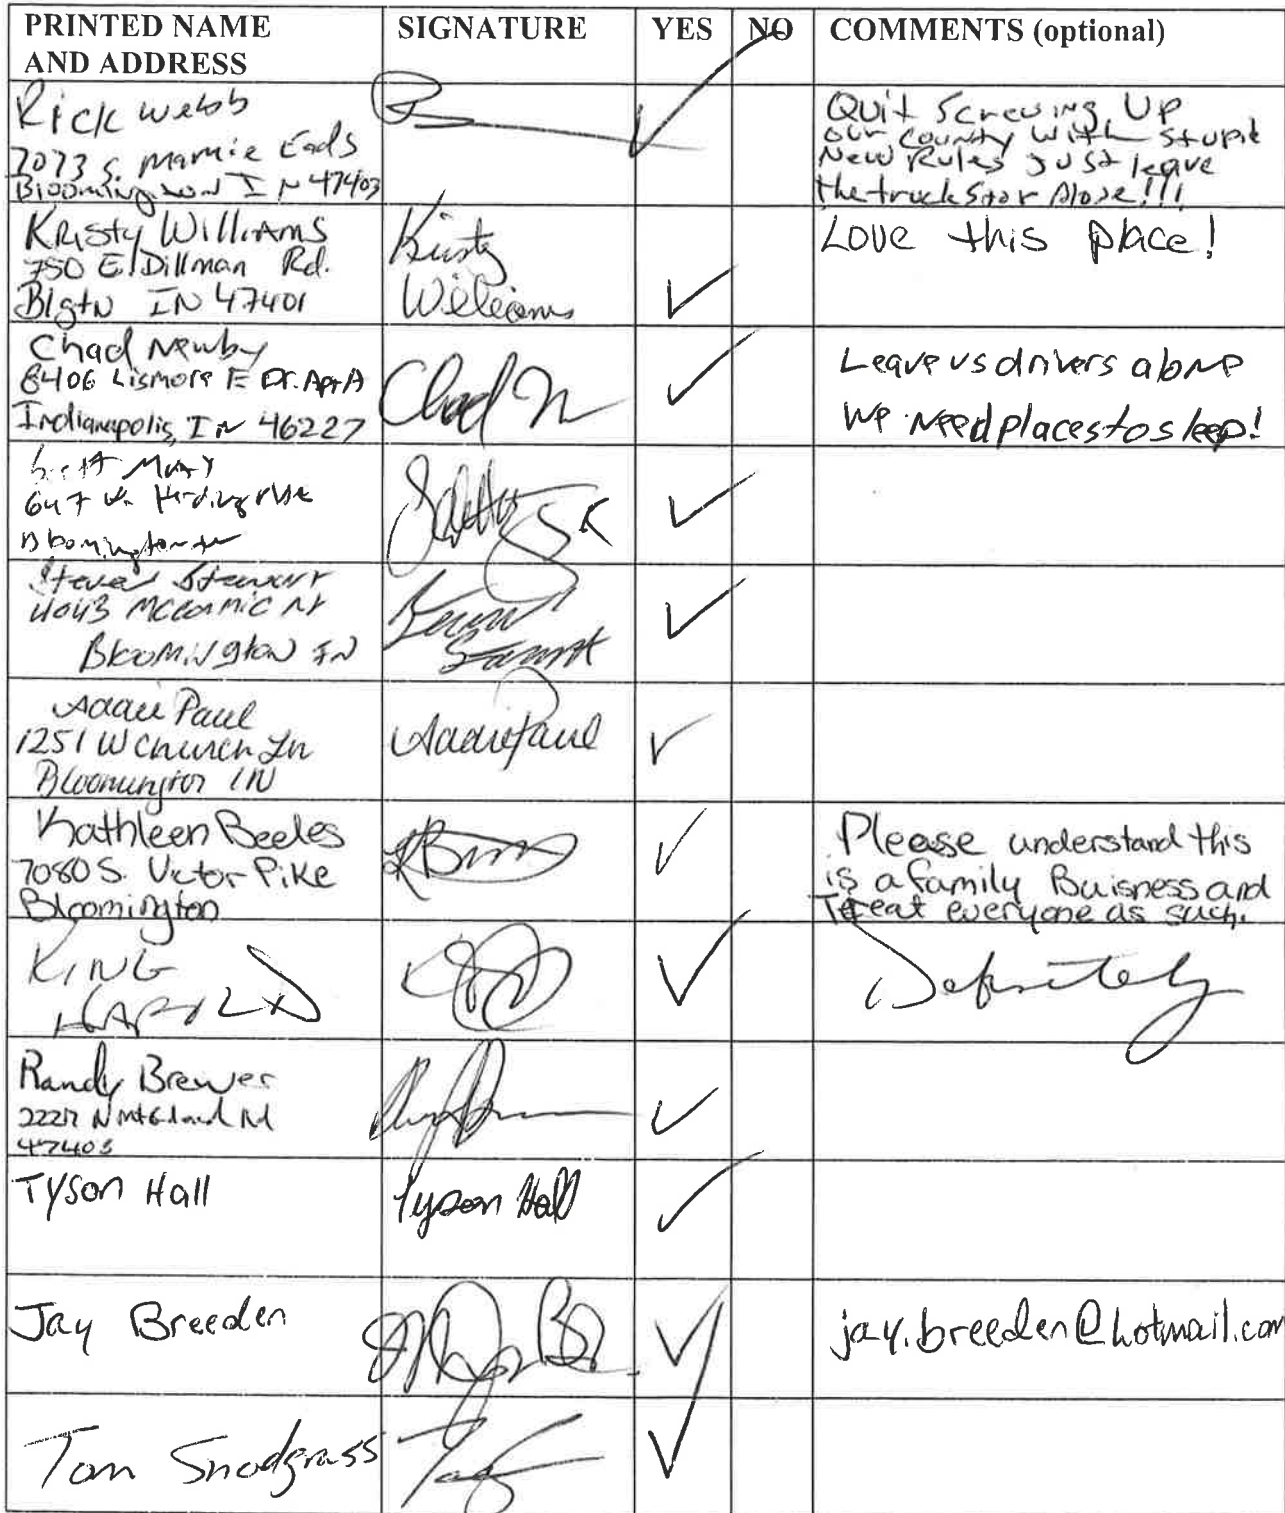 PRINTED NAME AND ADDRESS SIGNATURE YES NO COMMENTS (optional)
Rick Webb
7073 S. Mamie Eads
Bloomington IN 47403
Quit Screwing Up
our county with stupid
New Rules Just leave
the truck stop Alone!!!
Kristy Williams
750 E. Dillman Rd.
Blgtn IN 47401
Kristy
Williams
Love this place!
Chad Newby
8406 Lismore E Dr. Apt A
Indianapolis, IN 46227
Chad N
Leave us drivers alone
We Need places to sleep!
647 W.
Bloomington IN
Steve Stewart
4043
Bloomington IN
Paul
1251 W Church Ln
Bloomington IN
Paul
Kathleen Beeles
7080 S. Victor Pike
Bloomington
Please understand this
is a family Buisness and
Treat everyone as such.
KING
HAROLD
Definitely
Randy Brewer
Rd
47403
Tyson Hall
Tyson Hall
Jay Breeden
jay.breeden@hotmail.com
Tom Snodgrass